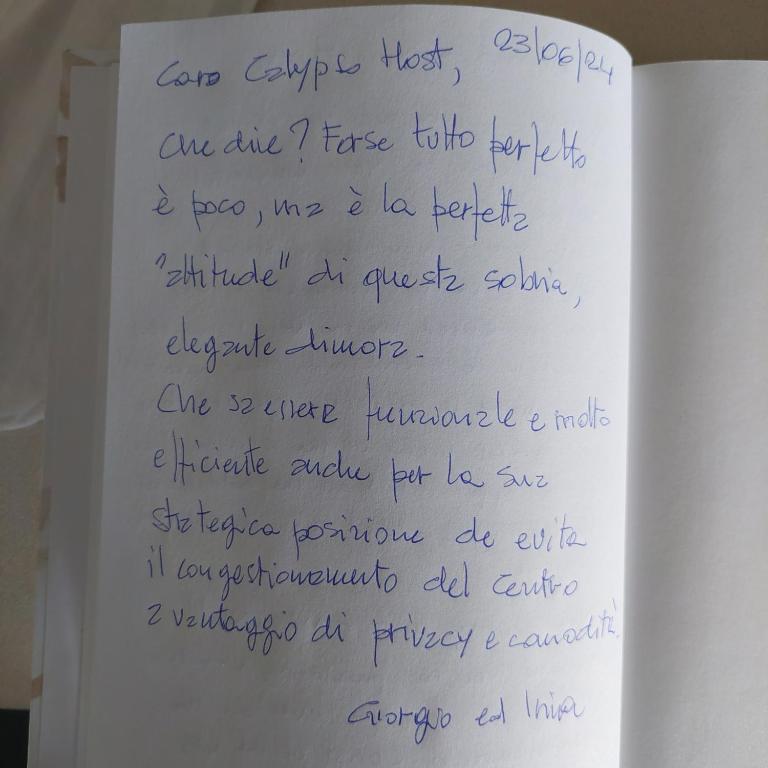 Caro Calypso Host, 23/06/24
Che dire? Forse tutto perfetto
è poco, ma è la perfetta
"attitude" di questa sobria,
elegante dimora.
Che sa essere funzionale e molto
efficiente anche per la sua
strategica posizione che evita
il congestionamento del centro
a vantaggio di privacy e comodità.
Giorgio ed